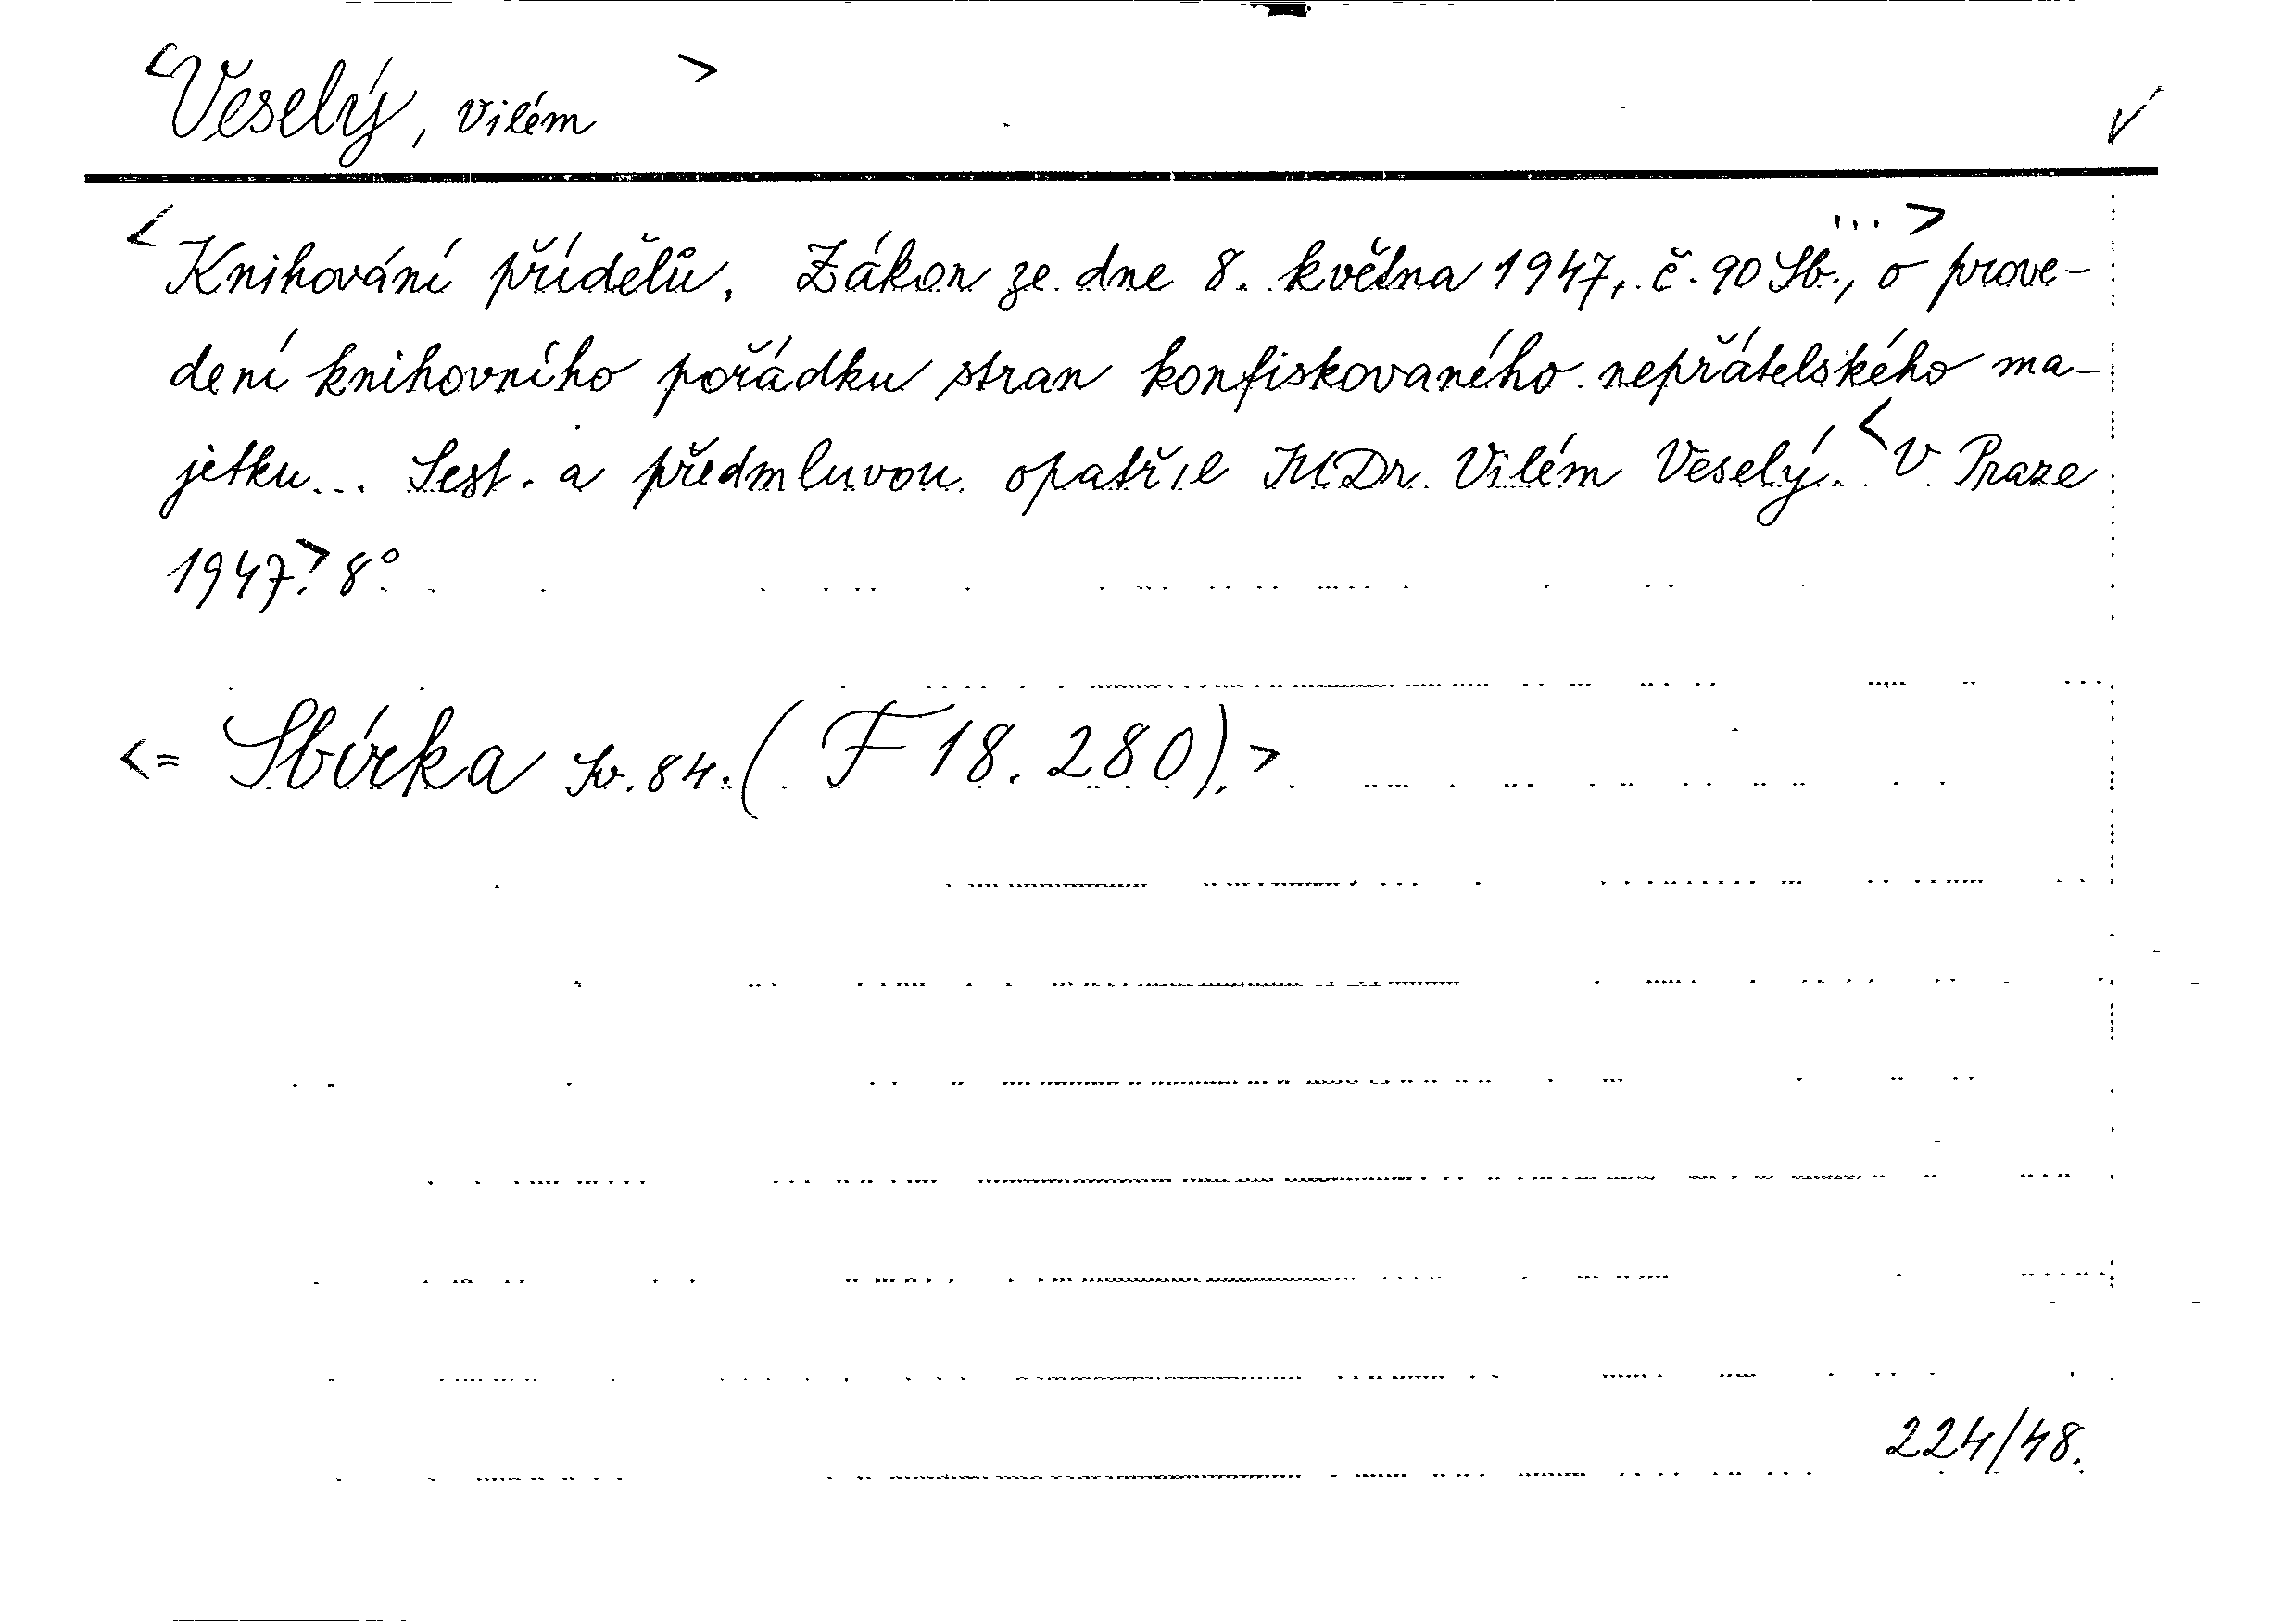 <Veselý, Vilém >
<Knihování přídělů. Zákon ze dne 8. května 1947, č. 90 Sb., ...> o prove-
dení knihovního pořádku stran konfiskovaného nepřátelského ma-
jetku... Sest. a předmluvou opatřil JUDr. Vilém Veselý. <V Praze
1947.> 8°.
<= Sbírka Sv. 84. (F 18.280).>
224/48.